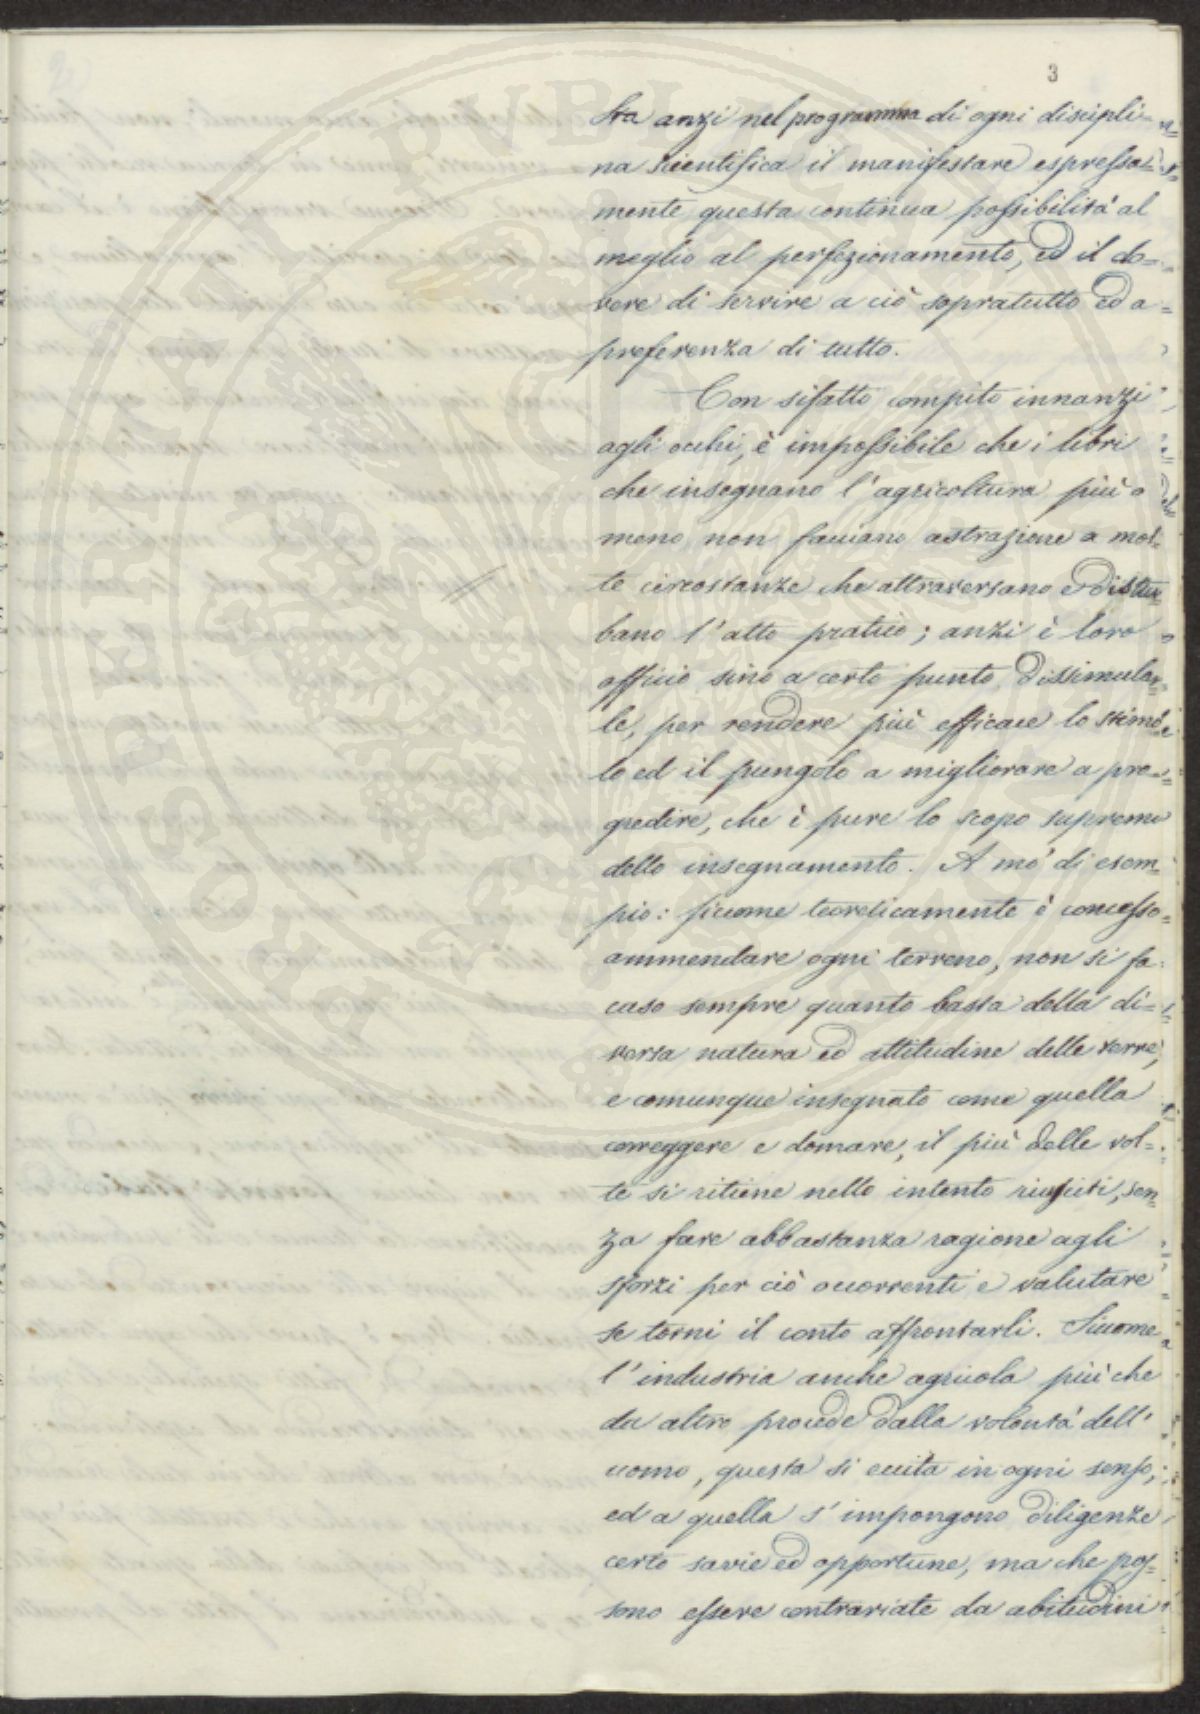 3
Sta anzi nel programma di ogni discipli=
na scientifica il manifestare espressa=
mente questa continua possibilità al
meglio al perfezionamento, ed il do=
vere di servire a ciò sopratutto ed a
preferenza di tutto.
Con sifatto compito innanzi
agli occhi, è impossibile che i libri
che insegnano l'agricoltura più o
meno non facciano astrazione a mol=
te circostanze che attraversano e distur=
bano l'atto pratico; anzi è loro
officio sino a certo punto dissimular=
le, per rendere più efficace lo stimo=
lo ed il pungolo a migliorare a pro=
gredire, che è pure lo scopo supremo
dello insegnamento. A mo' di esem=
pio: siccome teoreticamente è concesso
ammendare ogni terreno, non si fa
caso sempre quanto basta della di=
versa natura ed attitudine delle terre,
e comunque insegnato come quella
correggere e domare, il più delle vol=
te si ritiene nello intento riusciti, sen=
za fare abbastanza ragione agli
sforzi per ciò occorrenti e valutare
se torni il conto affrontarli. Siccome
l'industria anche agricola più che
da altro procede dalla volontà dell'
uomo, questa si eccita in ogni senso,
ed a quella s'impongono diligenze
certo savie ed opportune, ma che pos=
sono essere contrariate da abitudini